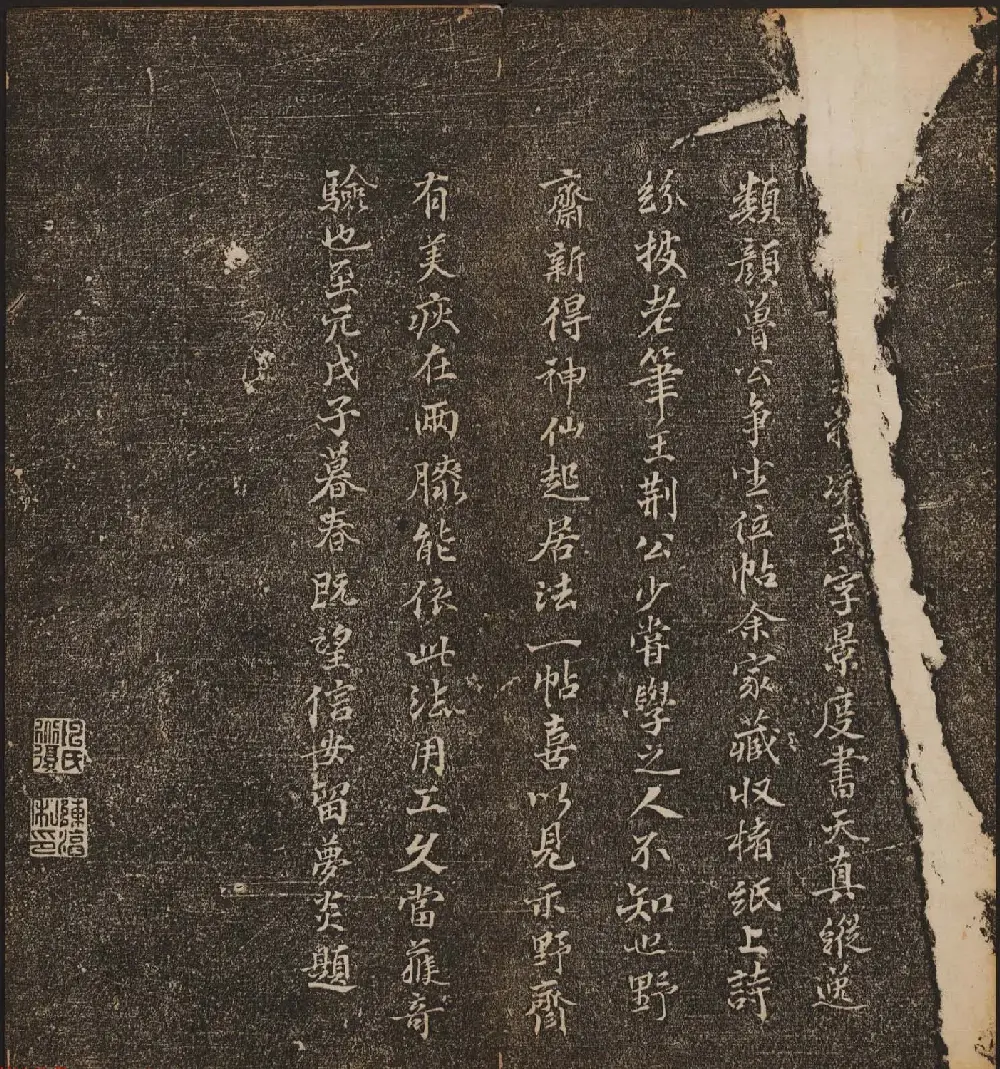 凝式字景度書天真縱逸
類顏魯公爭坐位帖余家藏収楮紙上詩
紛披老筆王荊公少嘗學之人不知也野
齋新得神仙起居法一帖喜以見示野齋
有美疢在兩膝能依此法用工久當獲奇
驗也至元戊子暮春既望信安留夢炎題